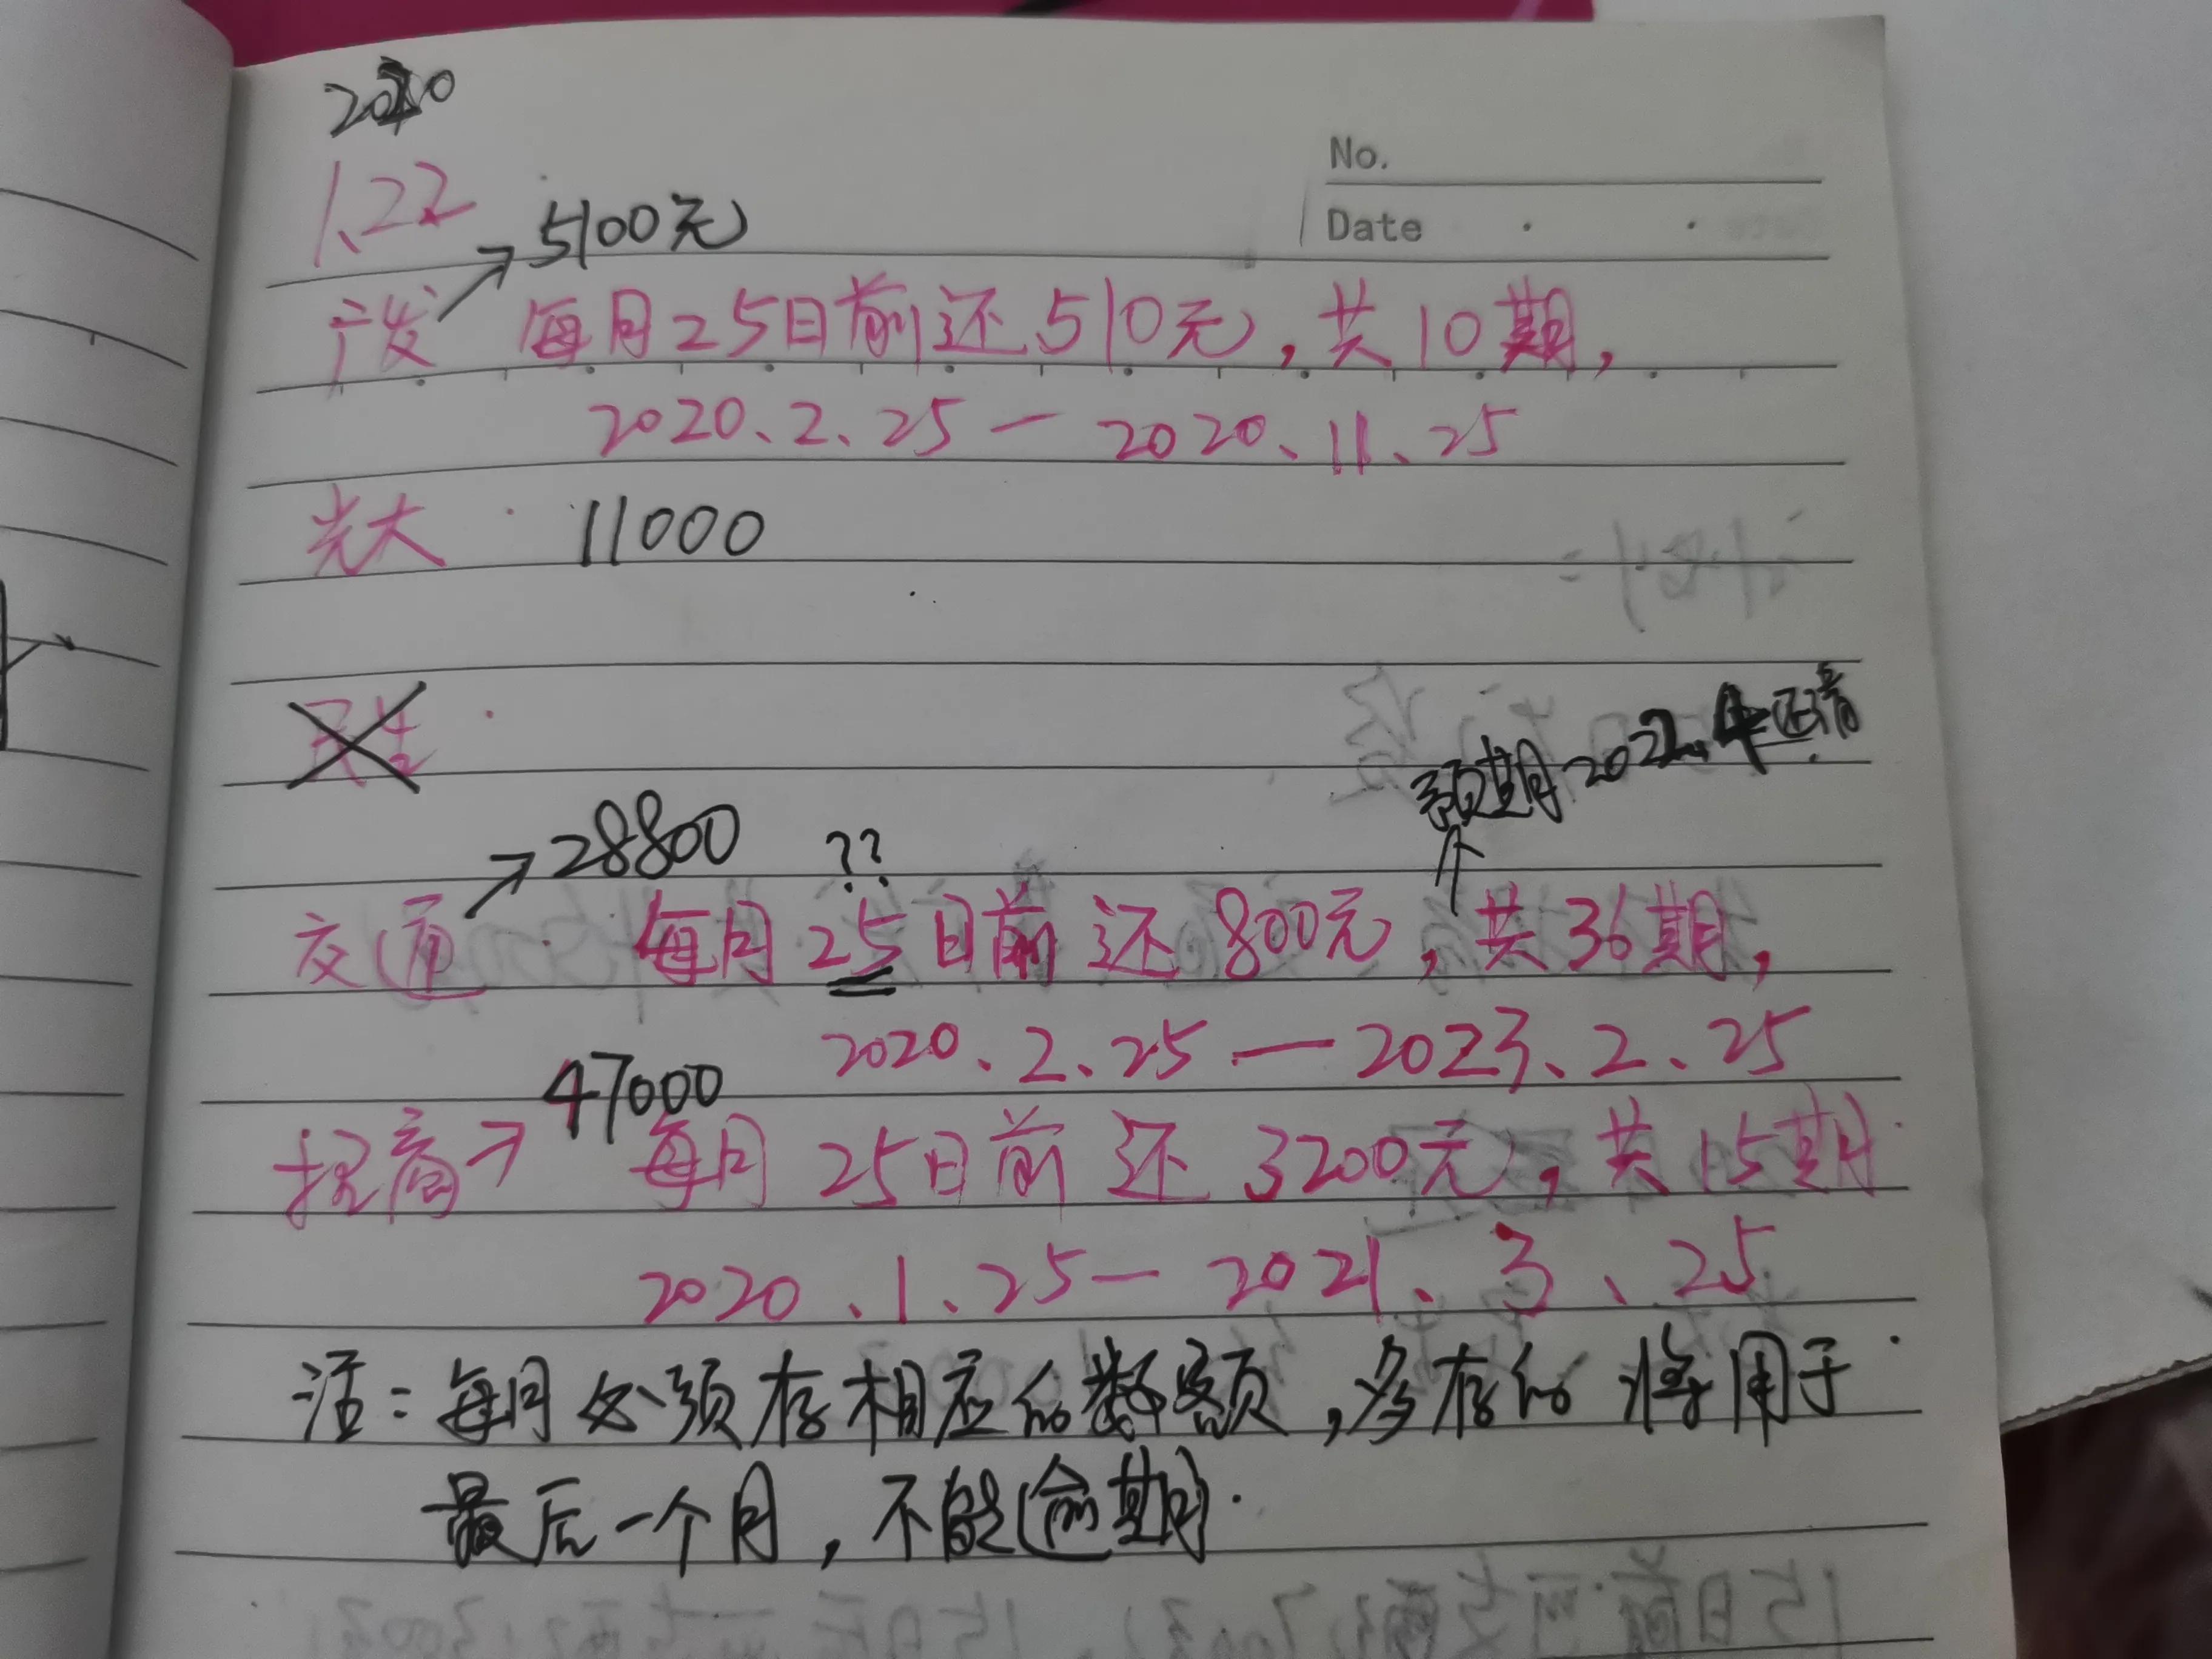 2020
No.
1.22
Date
→5100元
广发 每月25日前还510元,共10期,
2020、2、25 — 2020、11、25
光大 11000
民生
预期2022.4还清
→28800 ??
交通 每月25日前还800元,共36期,
2020、2、25 — 2023、2、25
47000
招商→ 每月25日前还3200元,共15期
2020、1、25 — 2021、3、25
注:每月必须存相应的数额,多存的将用于
最后一个月,不能逾期.